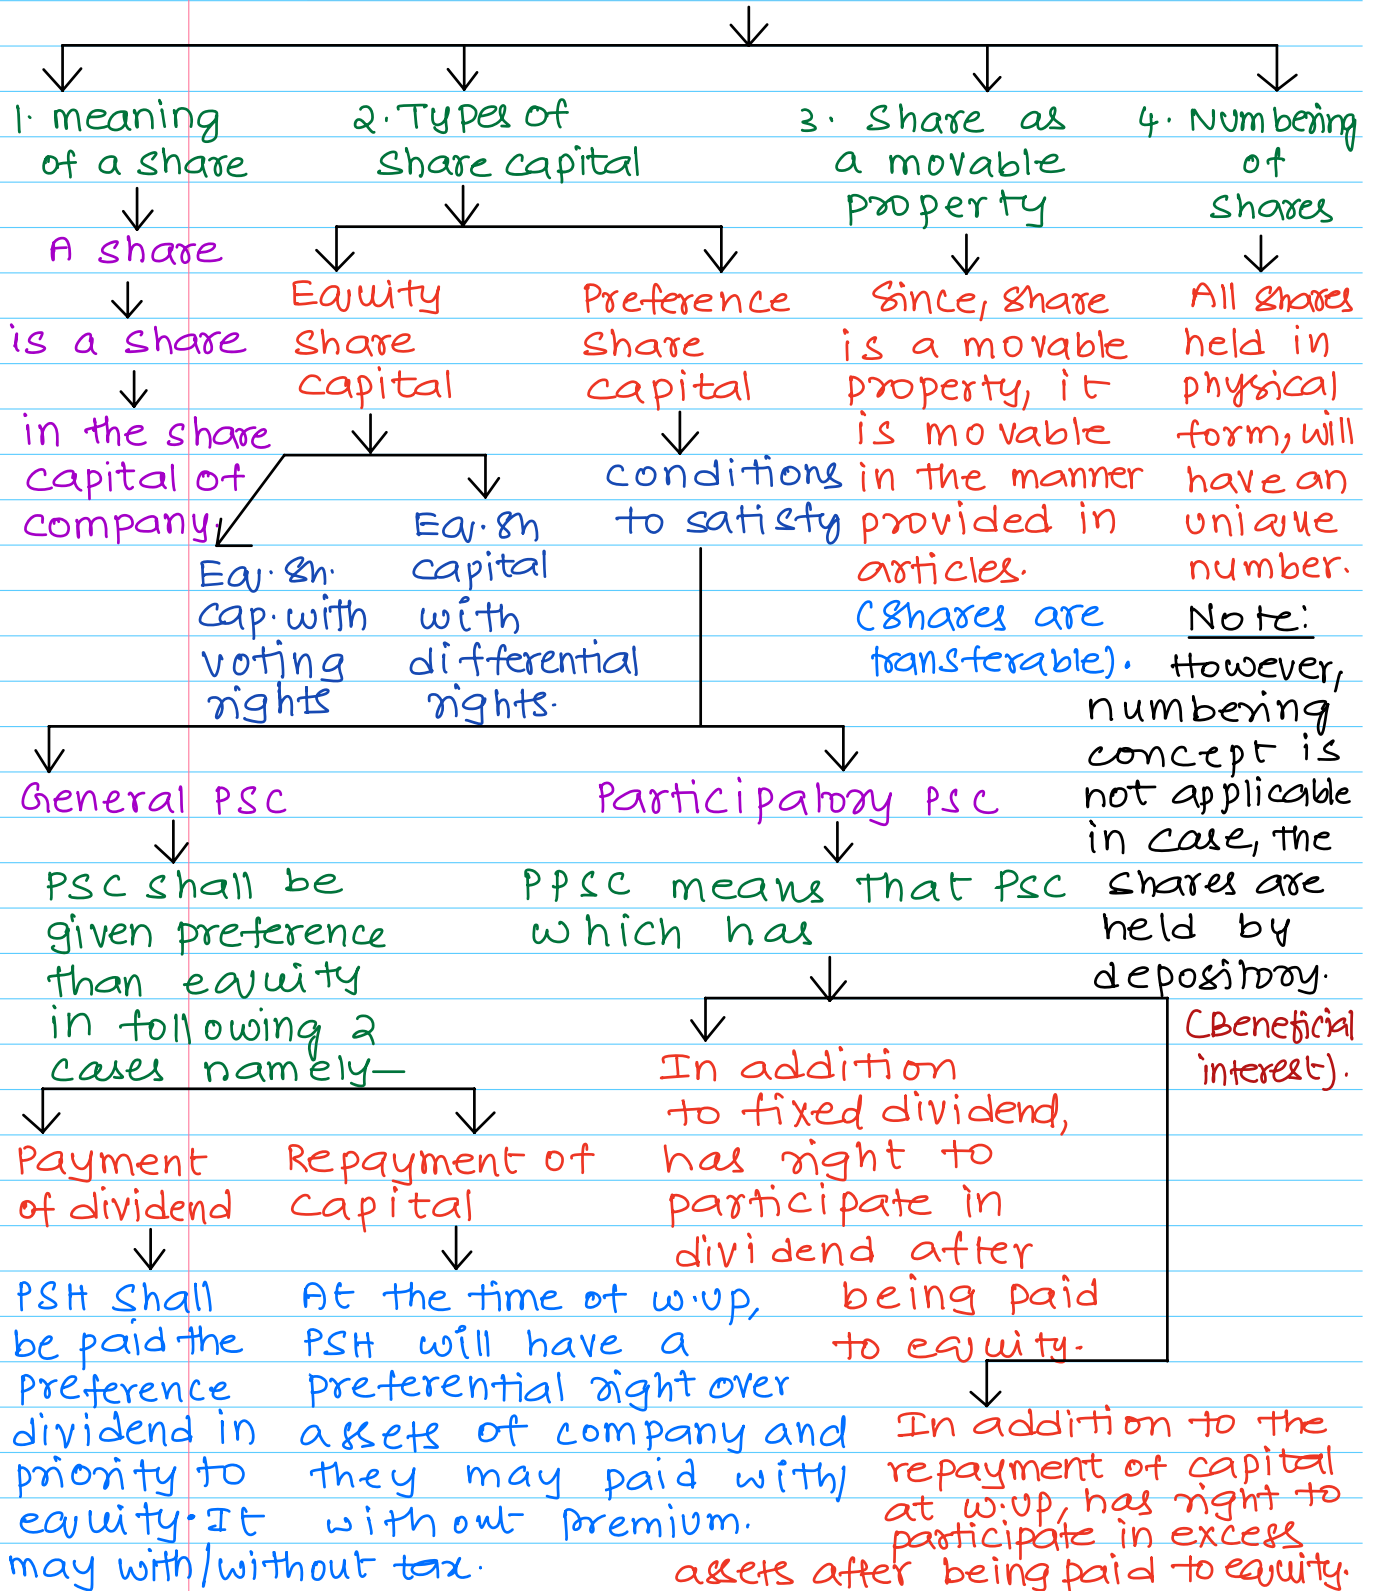 1. meaning
of a share
A share
is a share
in the share
capital of
company.
2. Types of
share capital
Equity
share
capital
Eq. sh.
cap. with
voting
rights
Eq. sh
capital
with
differential
rights.
Preference
share
capital
conditions
to satisfy
General PSC
PSC shall be
given preference
than equity
in following 2
cases namely—
Payment
of dividend
PSH shall
be paid the
preference
dividend in
priority to
equity. It
may with/without tax.
Repayment of
capital
At the time of w.up,
PSH will have a
preferential right over
assets of company and
they may paid with/
without premium.
Participatory PSC
PPSC means that PSC
which has
In addition
to fixed dividend,
has right to
participate in
dividend after
being paid
to equity.
In addition to the
repayment of capital
at w.up, has right to
participate in excess
assets after being paid to equity.
3. Share as
a movable
property
Since, share
is a movable
property, it
is movable
in the manner
provided in
articles.
(Shares are
transferable).
4. Numbering
of
shares
All shares
held in
physical
form, will
have an
unique
number.
Note:
However,
numbering
concept is
not applicable
in case, the
shares are
held by
depository.
(Beneficial
interest).